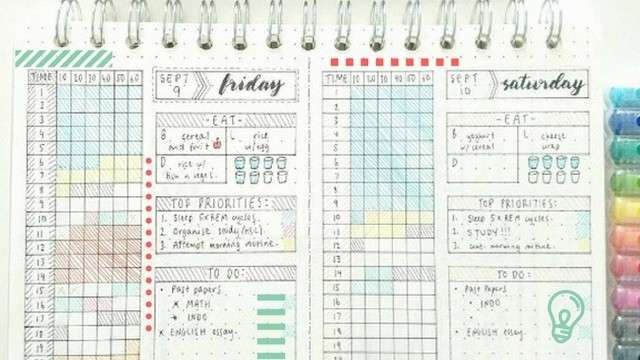 TIME 10 20 30 40 50 60
1
2
3
4
5
6
7
8
9
10
11
12
13
14
15
16
17
18
19
SEPT
9
friday
-EAT-
B cereal
and fruit
L rice
w/egg
D rice w/
TOP PRIORITIES:
1. Sleep 5xREM cycles.
2. Organise
3. Attempt morning routine.
TO DO:
Past papers
MATH
INDO
ENGLISH essay.
TIME 10 20 30 40 50 60
1
2
3
4
5
6
7
8
9
10
11
12
13
14
15
16
17
18
19
SEPT
10
saturday
-EAT-
B yoghurt
w/cereal
L cheese
wrap
D
TOP PRIORITIES:
1. Sleep 5xREM cycles.
2. STUDY!!!
3. morning routine.
TO DO:
Past Papers
INDO
ENGLISH essay.